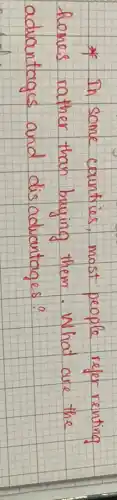 * In some countries, most people refer renting
homes rather than buying them. What are the
advantages and disadvantages?